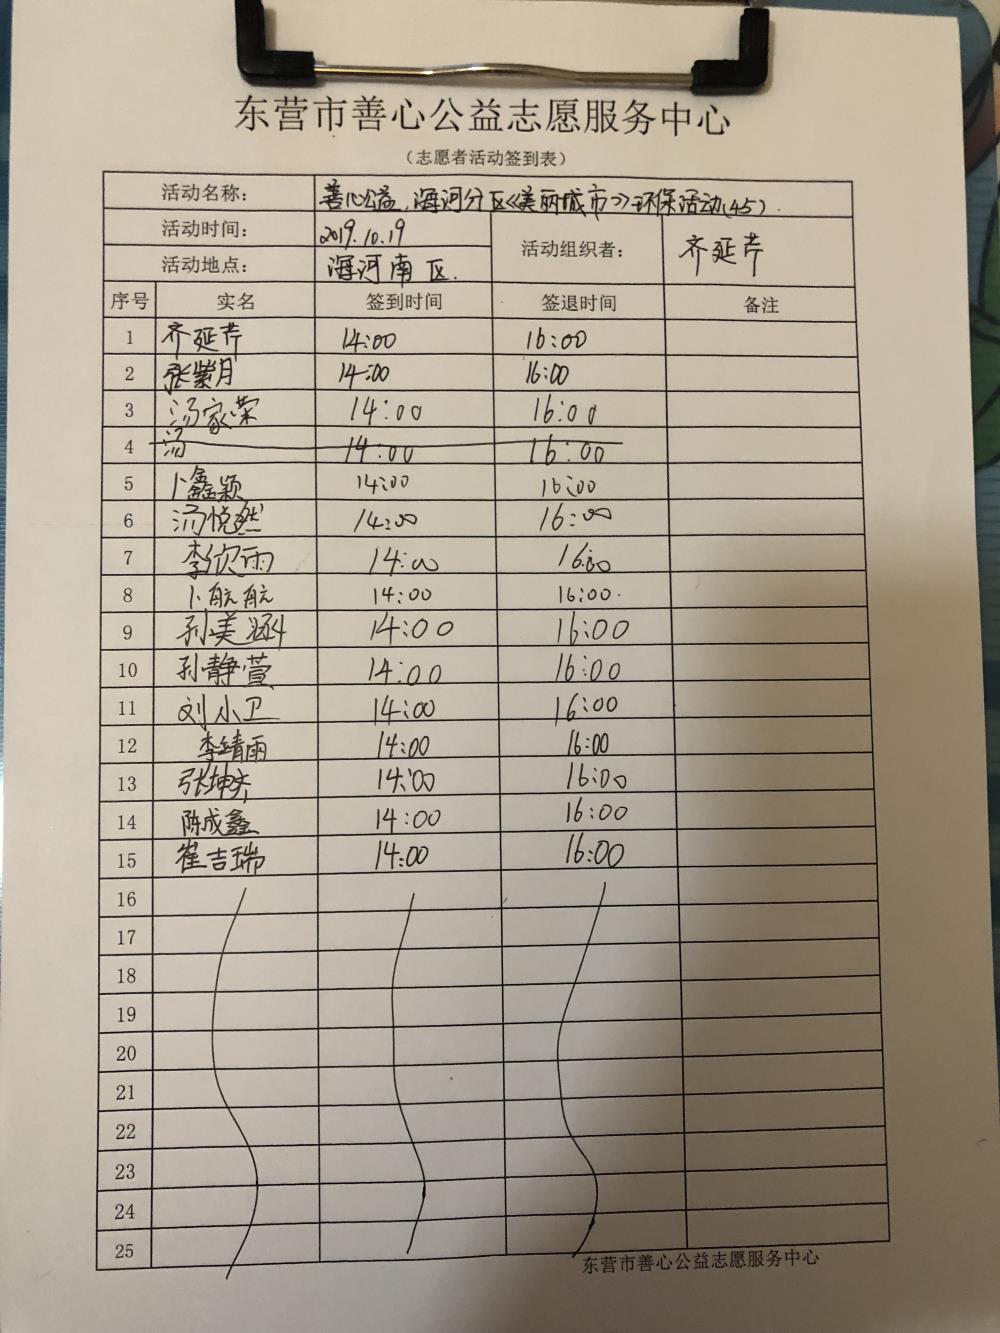 东营市善心公益志愿服务中心
（志愿者活动签到表）
活动名称： 善心公益，海河分区《美丽城市》环保活动(45).
活动时间： 2019.10.19 活动组织者： 齐延芹
活动地点： 海河南区.
序号 实名 签到时间 签退时间 备注
1 齐延芹 14:00 16:00
2 张紫月 14:00 16:00
3 汤家荣 14:00 16:00
4 汤 14:00 16:00
5 卜鑫颖 14:00 16:00
6 汤悦然 14:00 16:00
7 李欣雨 14:00 16:00
8 卜航航 14:00 16:00.
9 孙美涵 14:00 16:00
10 孙静萱 14:00 16:00
11 刘小卫 14:00 16:00
12 李靖雨 14:00 16:00
13 张坤齐 14:00 16:00
14 陈成鑫 14:00 16:00
15 崔吉瑞 14:00 16:00
16
17
18
19
20
21
22
23
24
25
东营市善心公益志愿服务中心